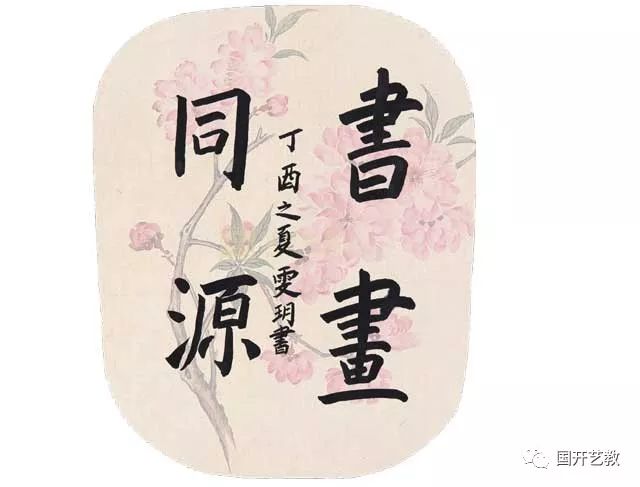 書畫
同源
丁酉之夏雯玥書
国开艺教